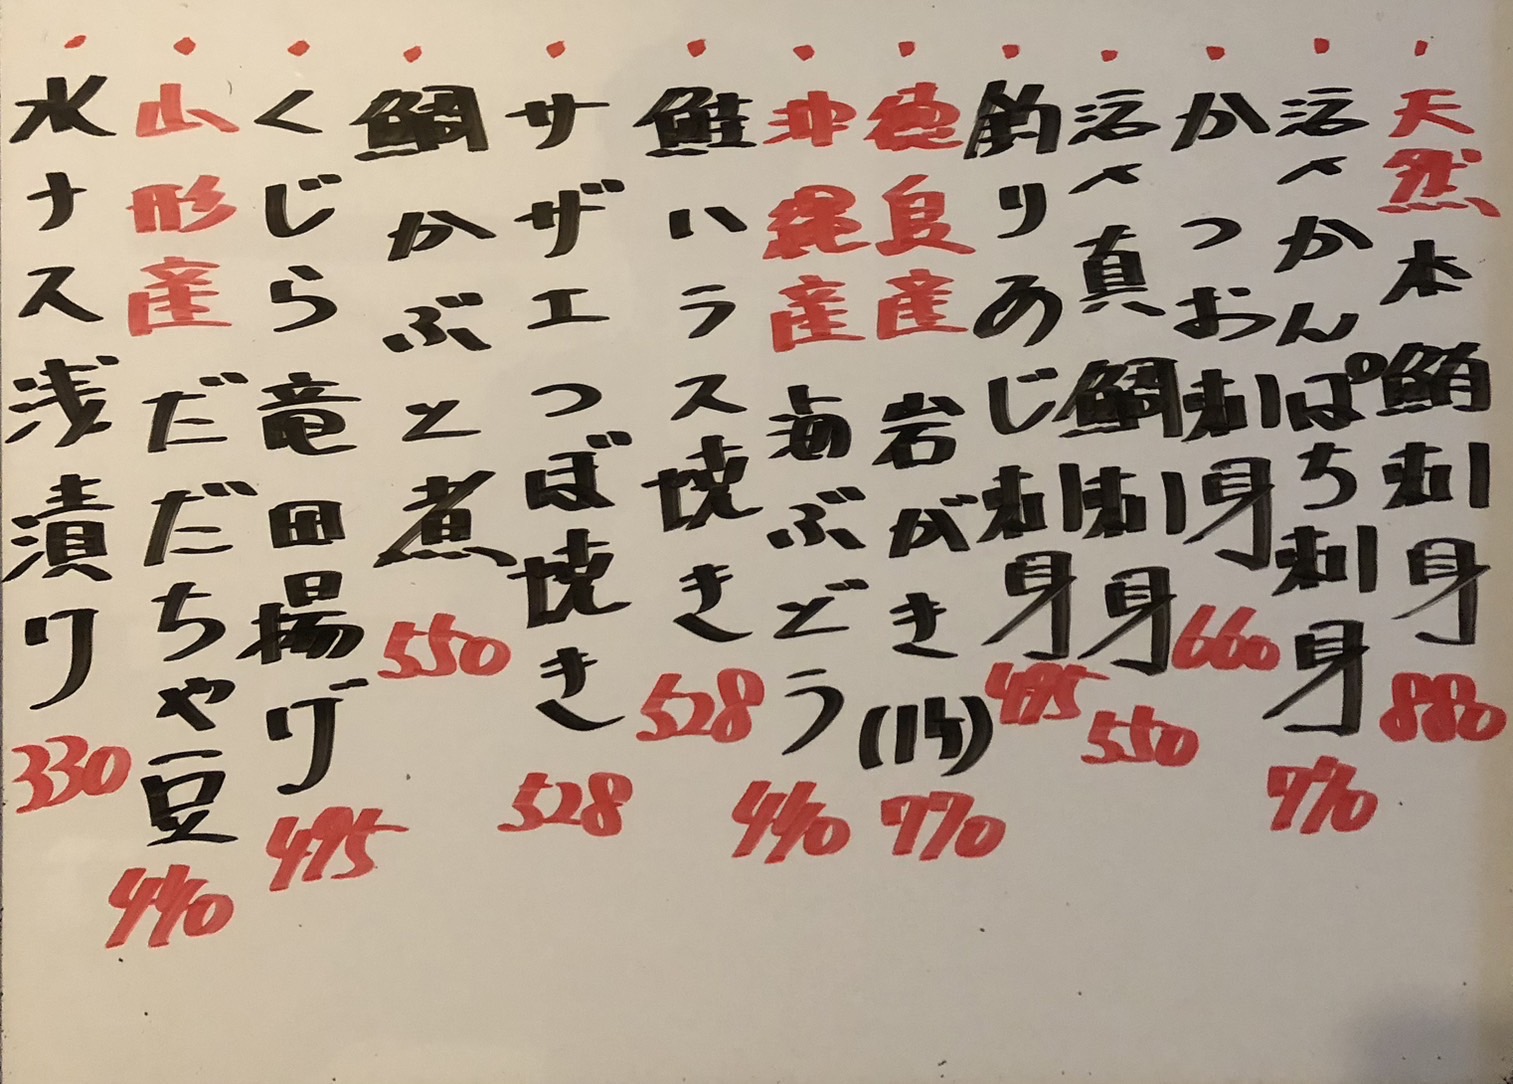 ・天然本鮪刺身 880
・活〆かんぱち刺身 770
・かつお刺身 660
・活〆真鯛刺身 550
・釣りあじ刺身 495
・徳良産岩がき(1ケ) 770
・沖縄産海ぶどう 440
・鮭ハラス焼き 528
・サザエつぼ焼き 528
・鯛かぶと煮 550
・くじら竜田揚げ 495
・山形産だだちゃ豆 440
・水ナス浅漬り 330